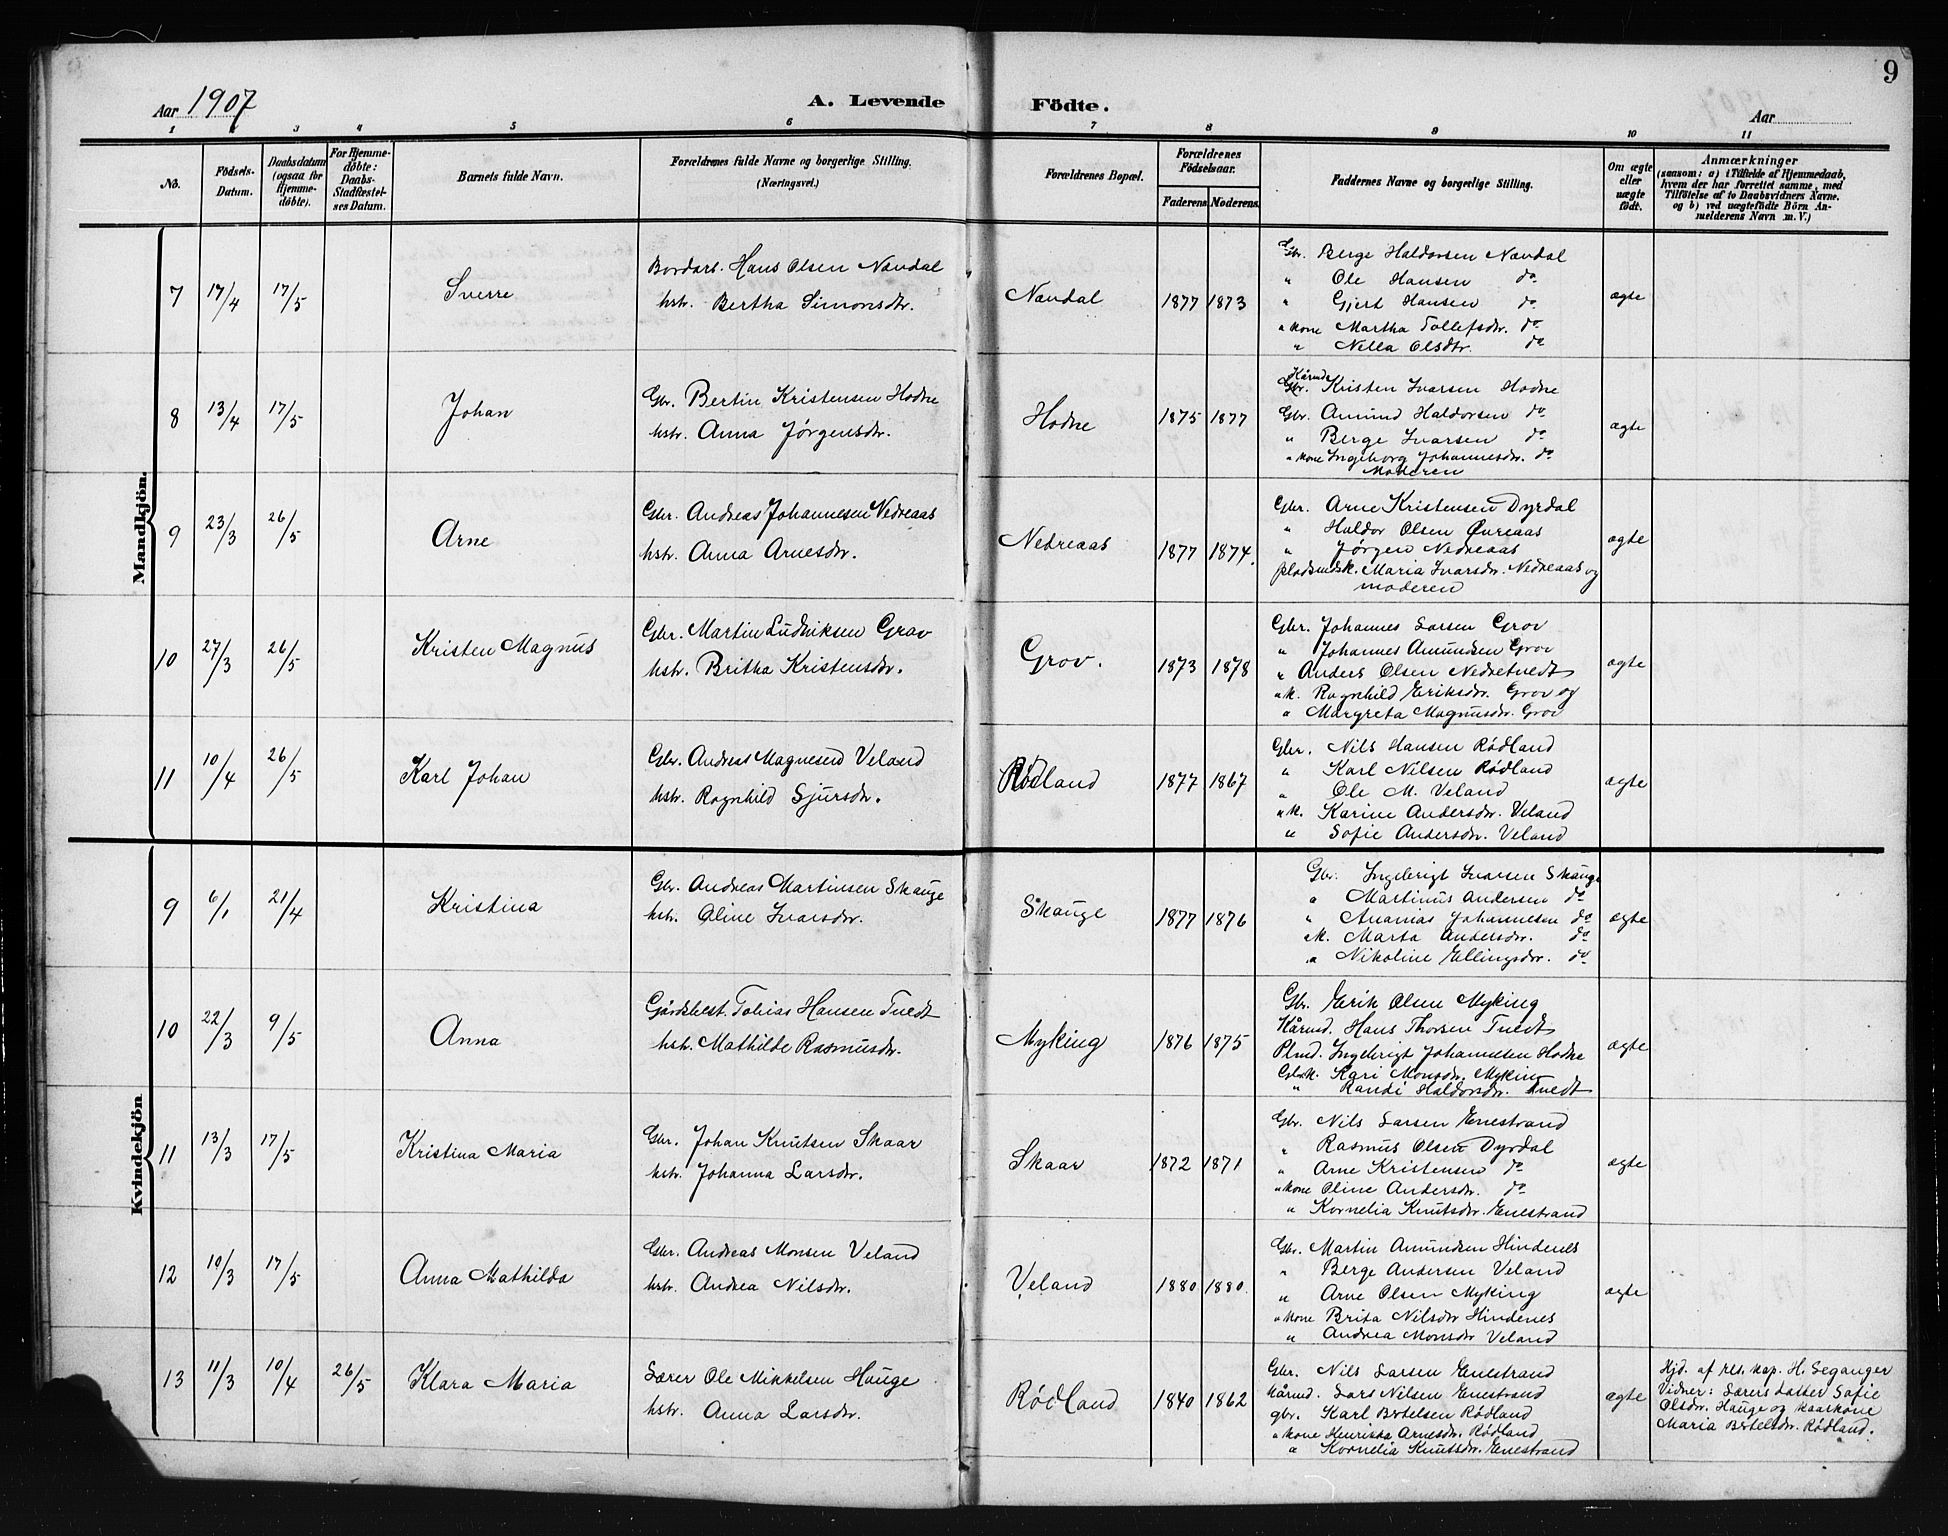 9
Aar 1907 A. Levende Födte. Aar
1 2 3 4 5 6 7 8 9 10 11
No.
Födsels-Datum.
Daabsdatum (ogsaa for Hjemme-döbte).
For Hjemme-döbte: Daabs-Stadfæstel-ses Datum.
Barnets fulde Navn.
Forældrenes fulde Navne og borgerlige Stilling. (Næringsvei.)
Forældrenes Bopæl.
Forældrenes Födselsaar.
Faderens Moderens
Faddernes Navne og borgerlige Stilling.
Om ægte eller uægte födt.
Anmærkninger
(saasom: a) i Tilfælde af Hjemmedaab, hvem der har forrettet samme, med Tilföielse af to Daabsvidners Navne. og b) ved uægtefödte Börn Anmelderens Navn m. V.)
Mandkjön.
7 17/4 17/5 Sverre
Bordarb. Hans Olsen Nævdal
hstr. Bertha Simonsdtr.
Nævdal 1877 1873
Gbr. Berge Haldorsen Nævdal
" Ole Hansen do
" Gjert Hansen do
" kone Martha Tollefsdtr. do
" Nella Olsdtr. do
ægte
8 13/4 17/5 Johan
Gbr. Bertin Kristensen Hodne
hstr. Anna Jørgensdtr.
Hodne 1875 1877
Kårmd.
Gbr. Kristen Ivarsen Hodne
Gbr. Amund Haldorsen do
" Berge Ivarsen do
" kone Ingeborg Johannesdtr. do
Moderen
ægte
9 23/3 26/5 Arne
Gbr. Andreas Johannesen Nedreaas
hstr. Anna Arnesdtr.
Nedreaas 1877 1874.
Gbr. Arne Kristensen Dyrdal
" Haldor Olsen Øvreaas
" Jørgen Nedreaas
pladsmdsk. Maria Ivarsdtr. Nedreaas og
moderen
ægte
10 27/3 26/5 Kristen Magnus
Gbr. Martin Ludviksen Grov
hstr. Britha Kristensdtr.
Grov. 1873 1878
Gbr. Johannes Larsen Grov
" Johannes Amundsen Grov
" Anders Olsen Nedretvedt
" k. Ragnhild Eriksdtr. Grov og
" Margreta Magnusdtr. Grov
ægte
11 10/4 26/5 Karl Johan
Gbr. Andreas Magnesen Veland
hstr. Ragnhild Sjursdtr.
Rødland 1877 1867
Gbr. Nils Hansen Rødland
" Karl Nilsen Rødland
" Ole M. Veland
" k. Karine Andersdtr. Veland
" Sofie Andersdtr. Veland
ægte
Kvindekjön
9 6/1 21/4 Kristina
Gbr. Andreas Martinsen Skauge
hstr. Oline Ivarsdtr.
Skauge 1877 1876
Gbr. Ingebrigt Ivarsen Skauge
" Martinus Andersen do
" Ananias Johannesen do
" k. Marta Andersdtr. do
" Nikoline Ellingsdtr. do
ægte
10 22/3 9/5 Anna
Gårdsbest. Tobias Hansen Tvedt
hstr. Mathilde Rasmusdtr.
Myking 1876 1875
Gbr. Erik Olsen Myking
Kårmd. Hans Thorsen Tvedt
Plmd. Ingebrigt Johannesen Hodne
Gbr.k. Kari Monsdtr. Myking
" Randi Haldorsdtr. Tvedt
ægte
11 13/3 17/5 Kristina Maria
Gbr. Johan Knutsen Skaar
hstr. Johanna Larsdtr.
Skaar 1872 1871
Gbr. Nils Larsen Enestrand
" Rasmus Olsen Dyrdal
" Arne Kristensen do
" kone Oline Andersdtr. do
" Kornelia Knutsdtr. Enestrand
ægte
12 10/3 17/5 Anna Mathilda
Gbr. Andreas Monsen Veland
hstr. Andrea Nilsdtr.
Veland 1880 1880.
Gbr. Martin Amundsen Hindenes
" Berge Andersen Veland
" Arne Olsen Myking
" kone Brita Nilsdtr Hindenes
" Andrea Monsdtr Veland
ægte
13 11/3 10/4 26/5 Klara Maria
Lærer Ole Mikkelsen Hauge
hstr. Anna Larsdtr.
Rødland 1840 1862
Gbr. Nils Larsen Enestrand
kårmd. Lars Nilsen Enestrand
gbr. Karl Bertelsen Rødland
" kone Henrikka Arnesdtr. Rødland
" Kornelia Knutsdtr. Enestrand
ægte
Hjd. af res. kap. H. Seganger
Vidner: Lærers datter Sofie
Olsdtr. Hauge og kaarkone
Maria Bertelsdtr. Rødland.